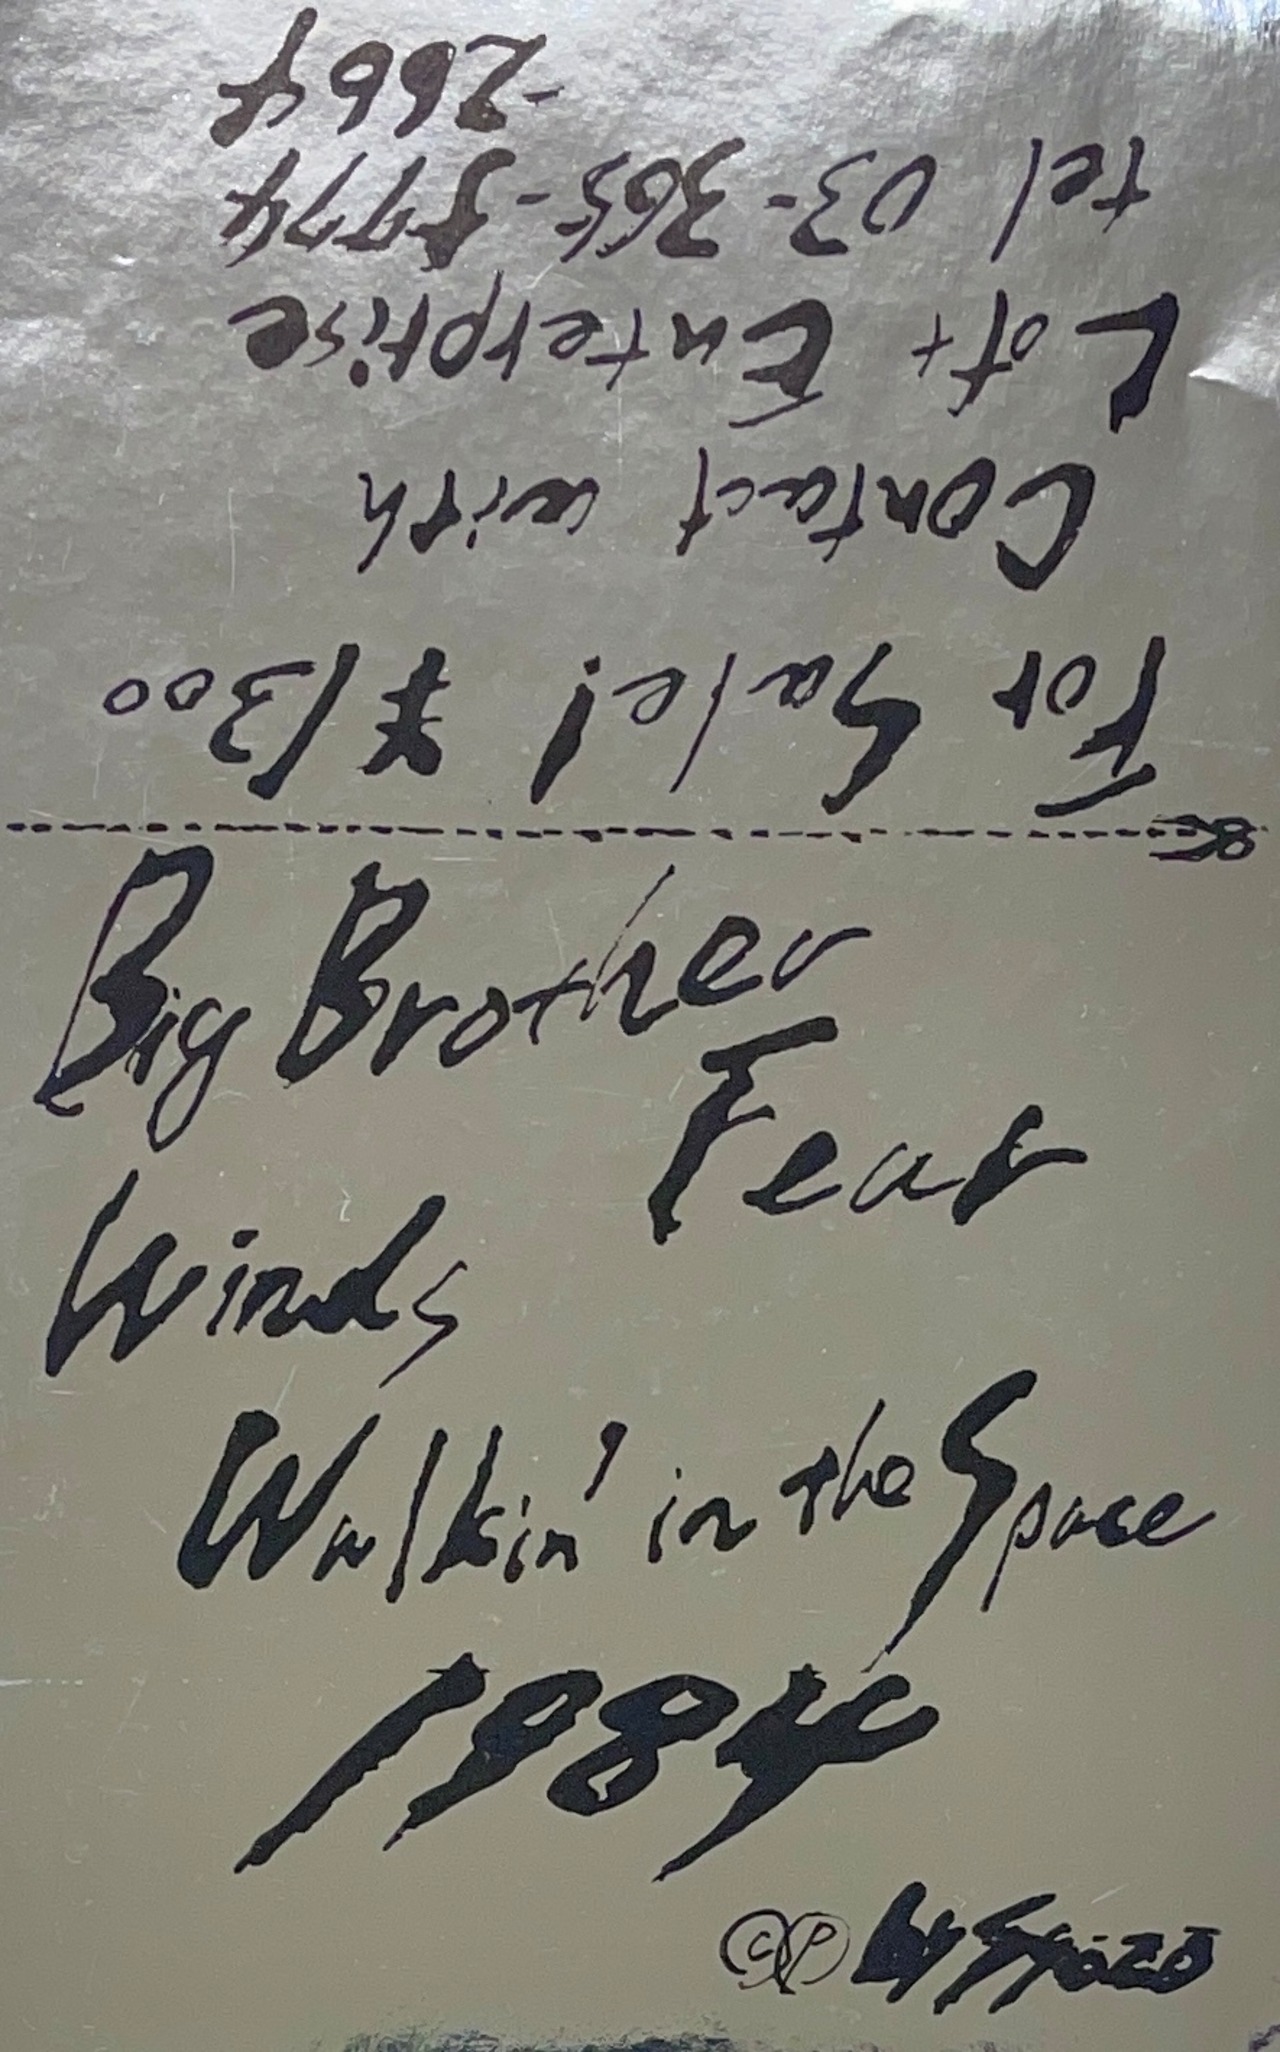 For Sale! ¥1300
Contact with
Loft Enterprise
tel
-2664
Big Brother
Fear
Winds
Walkin' in the Space
1984
©℗ by Syōzō